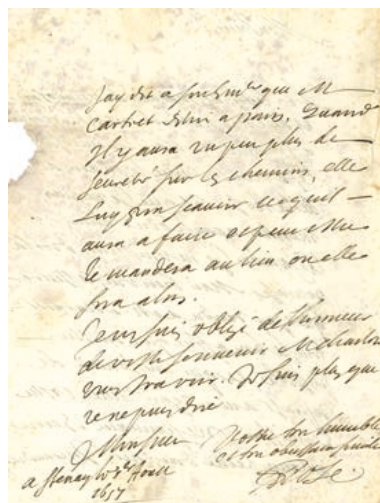 J'ay dit a son Em.ce que M
estoit a paris. Quand
Il y aura un peu plus de
seureté sur les chemins, elle
luy fera scavoir ce quil
aura a faire et
le mandera au lieu ou elle
sera alors.
Je suis obligé de l'honneur
de vostre souvenir M
vous ira voir. Je suis plus que
je ne puis dire
Monsieur Vostre tres humble
et tres obeissant
a Stenay Aoust ROSE
1657